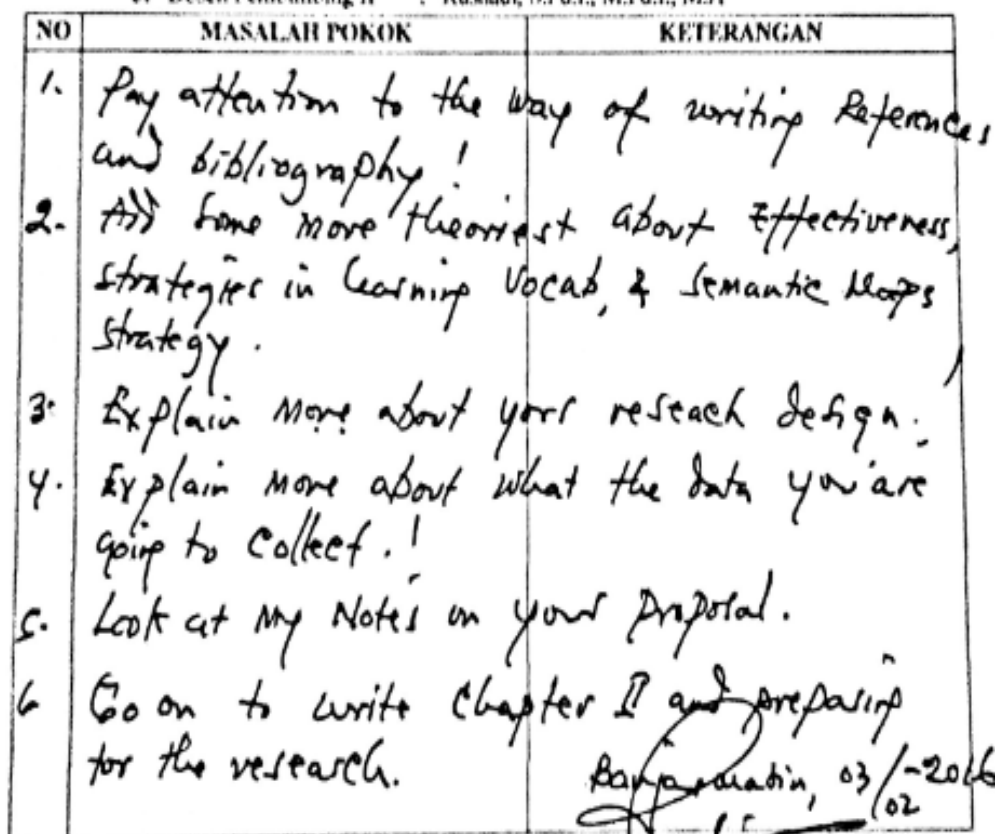 NO MASALAH POKOK KETERANGAN
1. Pay attention to the way of writing References
and bibliography!
2. Add some more theoriest about Effectiveness,
strategies in learning Vocab, & Semantic Maps
strategy.
3. Explain more about your reseach design.
4. Explain more about what the data you are
going to collect.!
5. Look at my Notes on your proposal.
6 Go on to write Chapter II and preparing
for the research.
Banjarmasin, 03/02-2016